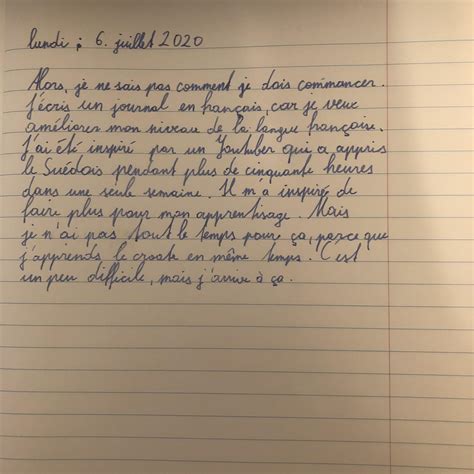 lundi : 6. juillet 2020
Alors, je ne sais pas comment je dois commancer.
J'écris un journal en français, car je veux
améliorer mon niveau de la langue française.
J'ai été inspiré par un Youtuber qui a appris
le Suédois pendant plus de cinquante heures
dans une seule semaine. Il m'a inspiré de
faire plus pour mon apprentisage. Mais
je n'ai pas tout le temps pour ça, parce que
j'apprends le croate en même temps. C'est
un peu difficile, mais j'arrive à ça.